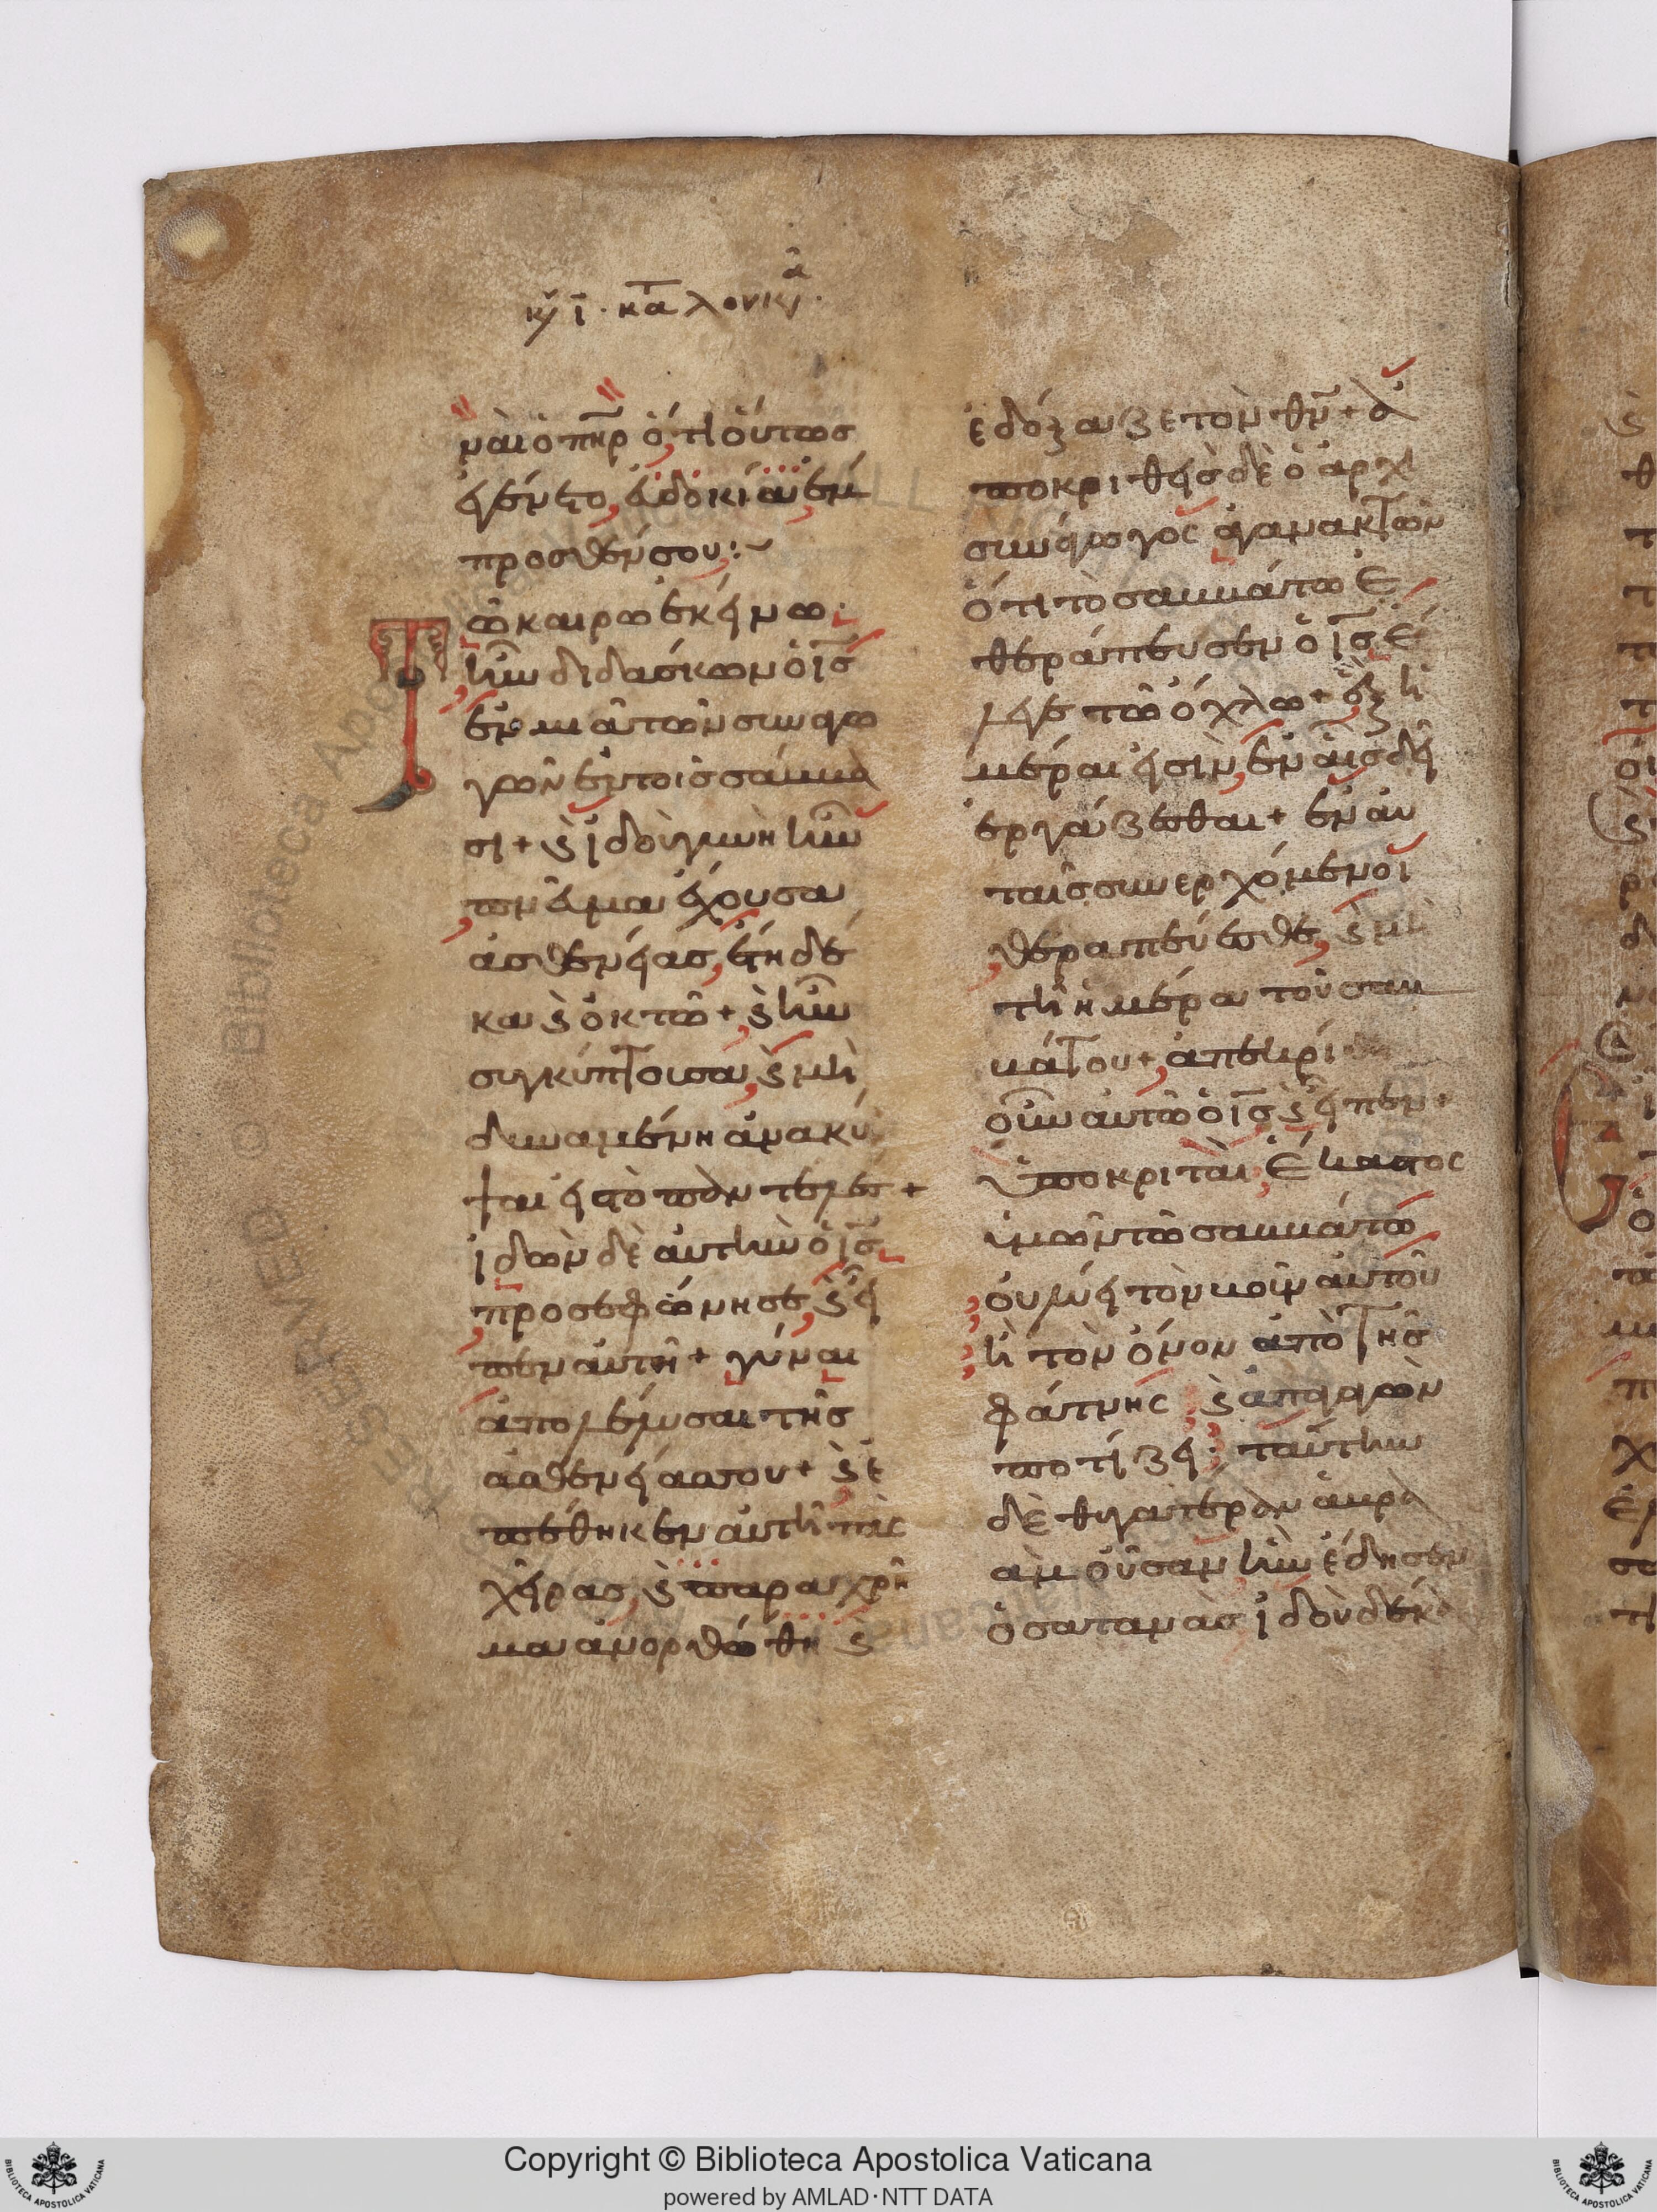 κυ ι · κατα λουκαν
ναι ὁ πηρ ὅτι ὅυτωσ
ἐγένετο ἐυδοκία ἔμ
προσθέν σου :~
Τῶ καιρῶ ἐκείνω·
ἦν διδάσκων ὁ ισ
ἐν μιᾶ τῶν συναγω
γῶν ἐν τοῖς σάββα
σι + κὰι ἰδοὺ γυνὴ ἦν
πνευμα ἔχουσα
ἀσθενείας ἔτη δέ
κα κὰι ὀκτὼ + κὰι ἦν
συγκύπτουσα κὰι μὴ
δυναμένη ἀνακύ
ψαι εἰς τὸ παντελὲς +
ἰδὼν δὲ αὐτὴν ὁ ισ
προσεφώνησε κὰι εἶ
πεν αὐτῆ + γύναι
ἀπολέλυσαι τῆς
ἀσθενείας σου + κὰι ἐ
πέθηκεν αὐτῆ τὰς
χεῖρας κὰι παραχρῆ
μα ἀνορθώθη κὰι
ἐδόξαζε τὸν θν + ἀ
ποκριθεὶς δὲ ὁ ἀρχι
συνάγωγος ἀγανακτῶν
ὅτι τὸ σαββάτω ἐ
θεράπευσεν ὁ ισ ἔ
λεγε τῶ ὄχλω + ἓξ ἡ
μέραι εἰσὶν ἐν αἷς δεῖ
ἐργάζεσθαι + ἐν αὐ
ταῖς συνερχόμενοι
θεραπεύεσθε κὰι μὴ
τῆ ἡμέρα τοῦ σαβ
βάτου + ἀπεκρί
οὖν αὐτῶ ὁ ισ κὰι εἶπεν +
ὑποκριταὶ ἕκαστος
ὑμῶν τῶ σαββάτω
οὐ λύει τὸν βοῦν αὐτοῦ
ἢ τὸν ὄνον ἀπὸ τῆς
φάτνης κὰι ἀπαγαγὼν
ποτίζει ; ταύτην
δὲ θυγατέραν ἀβρα
ὰμ οὖσαν ἣν ἔδησεν
ὁ σατανὰς ἰδοὺ δέκα
Copyright © Biblioteca Apostolica Vaticana
powered by AMLAD·NTT DATA